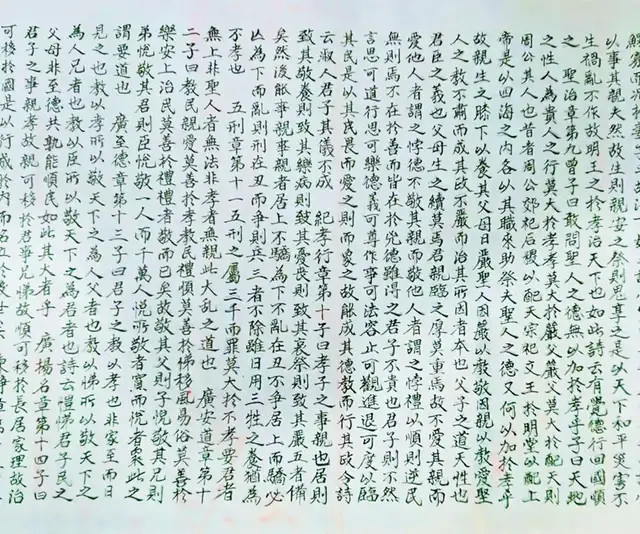 以事其親夫然故生則親安之祭則鬼享之是以天下和平災害不
生禍亂不作故明王之於孝治天下也如此詩云有覺德行四國順
之 聖治章第九曾子曰敢問聖人之德無以加於孝乎子曰天地
之性人為貴人之行莫大於孝孝莫大於嚴父嚴父莫大於配天則
周公其人也昔者周公郊祀后稷以配天宗祀文王於明堂以配上
帝是以四海之内各以其職來助祭夫聖人之德又何以加於孝乎
故親生之膝下以養其父母日嚴聖人因嚴以教敬因親以教愛聖
人之教不肅而成其政不嚴而治其所因者本也父子之道天性也
君臣之義也父母生之續莫焉君親臨之厚莫重焉故不愛其親而
愛他人者謂之悖德不敬其親而敬他人者謂之悖禮以順則逆民
無則焉不在於善而皆在於兇德雖得之君子不貴也君子則不然
言思可道行思可樂德義可尊作事可法容止可觀進退可度以臨
其民是以其民畏而愛之則而象之故能成其德教而行其政令詩
云淑人君子其儀不忒 紀孝行章第十子曰孝子之事親也居則
致其敬養則致其樂病則致其憂喪則致其哀祭則致其嚴五者備
矣然後能事親事親者居上不驕為下不亂在丑不爭居上而驕必
凶為下而亂則刑在丑而爭則兵三者不除雖日用三牲之養猶為
不孝也 五刑章第十一五刑之屬三千而罪莫大於不孝要君者
無上非聖人者無法非孝者無親此大亂之道也 廣要道章第十
二子曰教民親愛莫善於孝教民禮順莫善於悌移風易俗莫善於
樂安上治民莫善於禮禮者敬而已矣故敬其父則子悅敬其兄則
弟悅敬其君則臣悅敬一人而千萬人悅所敬者寡而悅者眾此之
謂要道也 廣至德章第十三子曰君子之教以孝也非家至而日
見之也教以孝所以敬天下之為人父者也教以悌所以敬天下之
為人兄者也教以臣所以敬天下之為君者也詩云愷悌君子民之
父母非至德其孰能順民如此其大者乎 廣揚名章第十四子曰
君子之事親孝故可移於君事兄悌故順可移於長居家理故治
可移於是以行成於內而名立於後世矣